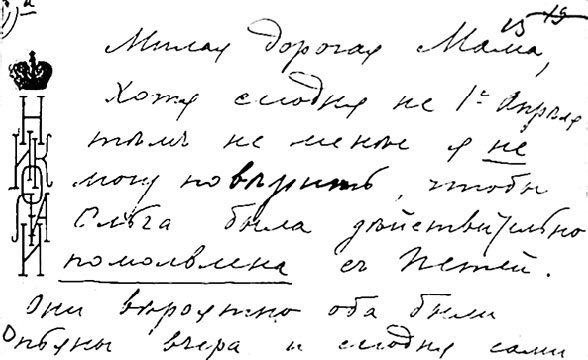 15 19
Милая дорогая Мама,
Хотя сегодня не 1ᵒᵉ Апреля
тѣмъ не менѣе я не
могу повѣрить, чтобы
Ольга была дѣйствительно
помолвлена съ Петей.
Они вѣроятно оба были
пьяны вчера и сегодня сами
НИКОЛАЙ